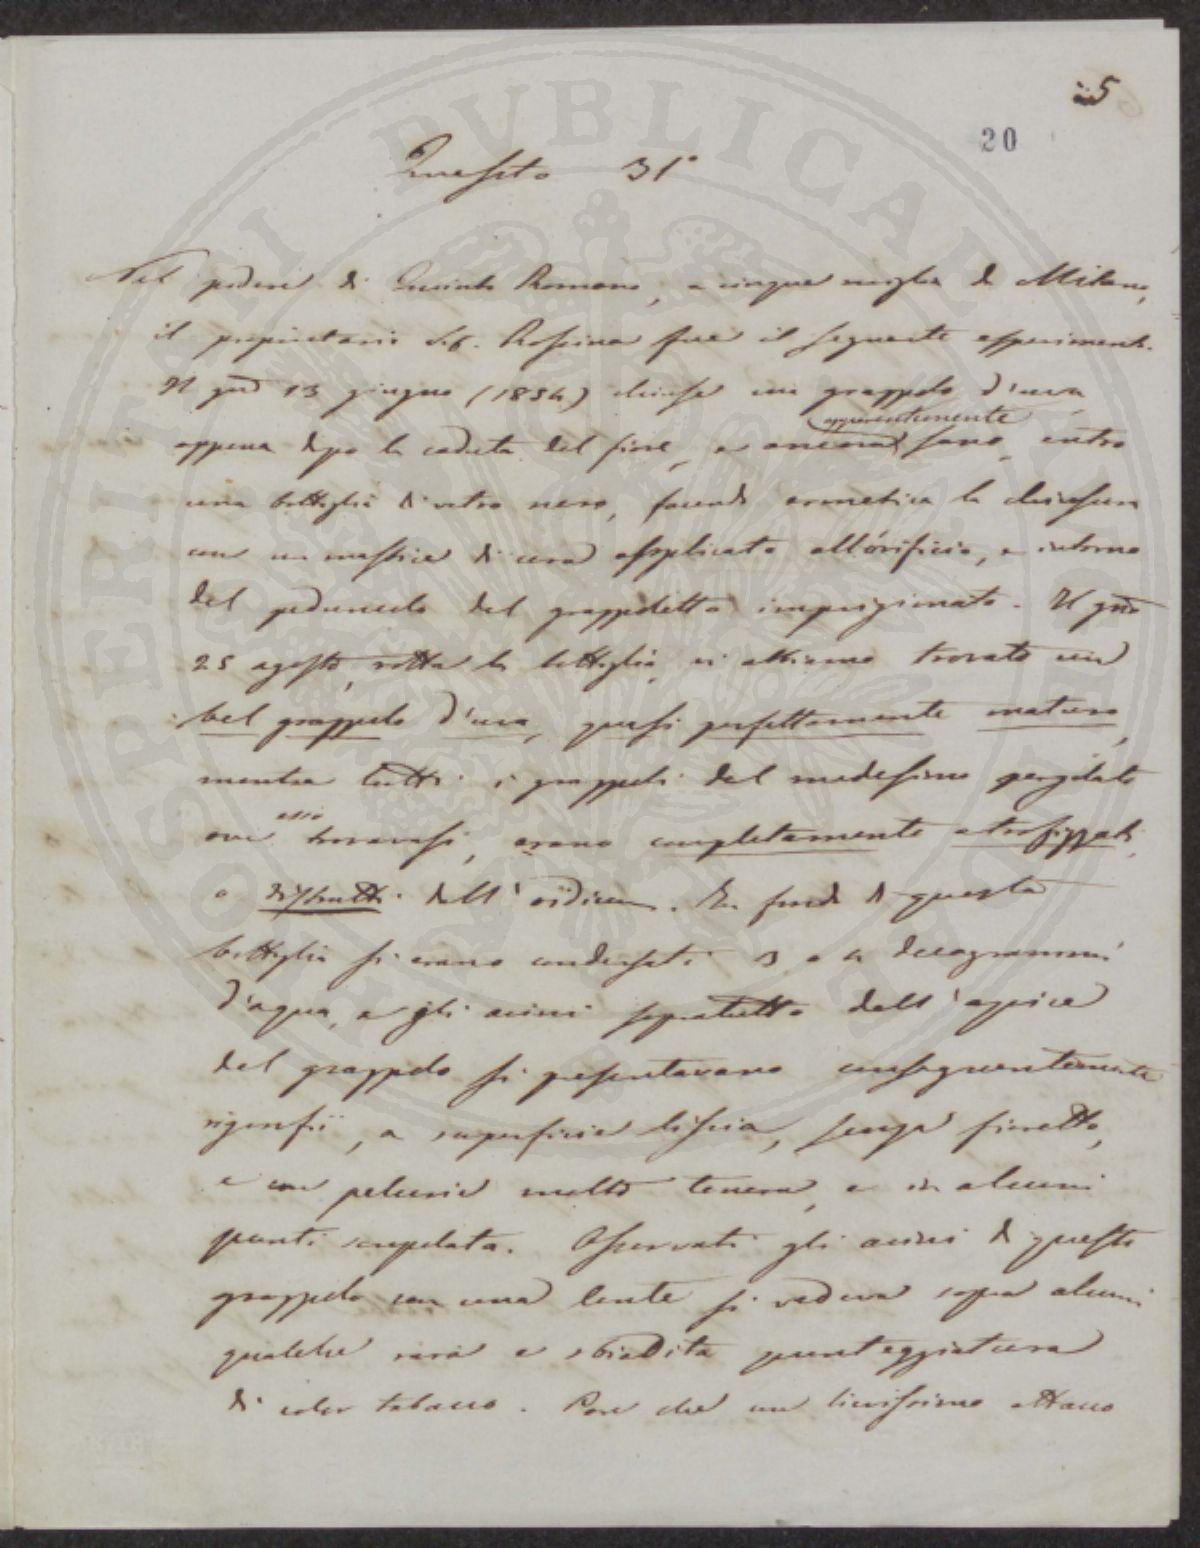 5
20
Quesito 31°
Nel podere di Quinto Romano, a cinque miglia da Milano,
il proprietario Sig. Rossina fece il seguente esperimento.
Il gno 13 giugno (1854) chiuse un grappolo d'uva
apparentemente
appena dopo la caduta del fiore, e ancora sano, entro
una bottiglia di vetro nero, facendo ermetica la chiusura
con un mastice di cera applicato all'orificio, e intorno
del peduncolo del grappoletto imprigionato. Il gno
25 agosto, rotta la bottiglia, vi abbiamo trovato un
bel grappolo d'uva, quasi perfettamente maturo,
mentre tutti i grappoli del medesimo pergolato
esso
ove trovavasi, erano completamente atrofizzati,
o distrutti dall'oidium. In fondo di questa
bottiglia si erano condensati 3 o 4 decagrammi
d'aqua, e gli acini sopratutto dell'apice
del grappolo si presentavano conseguentemente
rigonfii, a superficie liscia, senza fioretto,
e con pelurie molto tenera, e in alcuni
punti screpolata. Osservati gli acini di questo
grappolo con una lente si vedeva sopra alcuni
qualche rara e sbiadita punteggiatura
di color tabacco. Pare che un lievissimo attacco